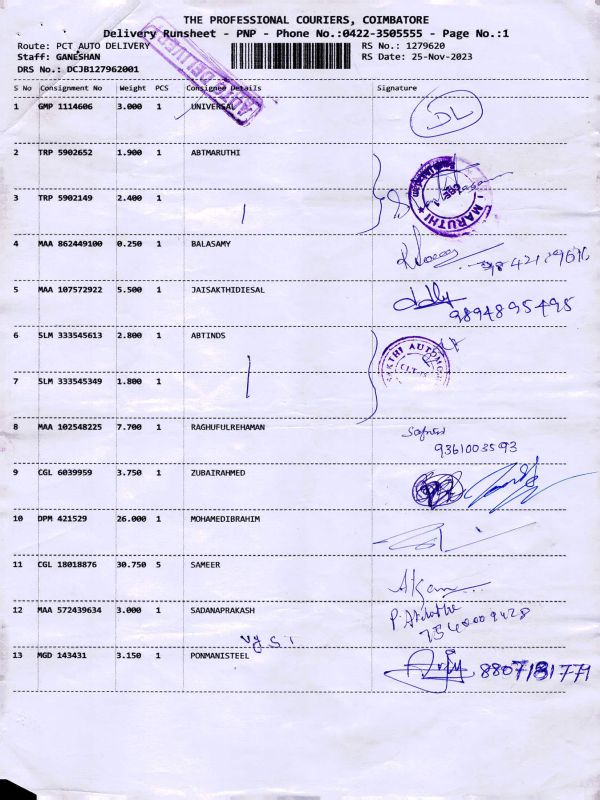 THE PROFESSIONAL COURIERS, COIMBATORE
Delivery Runsheet - PNP - Phone No.:0422-3505555 - Page No.:1
Route: PCT AUTO DELIVERY RS No.: 1279620
Staff: GANESHAN RS Date: 25-Nov-2023
DRS No.: DCJB127962001
AUTO DELIVERY
S No Consignment No Weight PCS Consignee Details Signature
1 GMP 1114606 3.000 1 UNIVERSAL DL
2 TRP 5902652 1.900 1 ABTMARUTHI
3 TRP 5902149 2.400 1
MARUTHI
4 MAA 862449100 0.250 1 BALASAMY
5 MAA 107572922 5.500 1 JAISAKTHIDIESAL
9894895495
6 SLM 333545613 2.800 1 ABTINDS
SAKTHI AUTOMO
7 SLM 333545349 1.800 1
8 MAA 102548225 7.700 1 RAGHUFULREHAMAN
9361003593
9 CGL 6039959 3.750 1 ZUBAIRAHMED
10 DPM 421529 26.000 1 MOHAMEDIBRAHIM
11 CGL 18018876 30.750 5 SAMEER
12 MAA 572439634 3.000 1 SADANAPRAKASH
13 MGD 143431 3.150 1 PONMANISTEEL